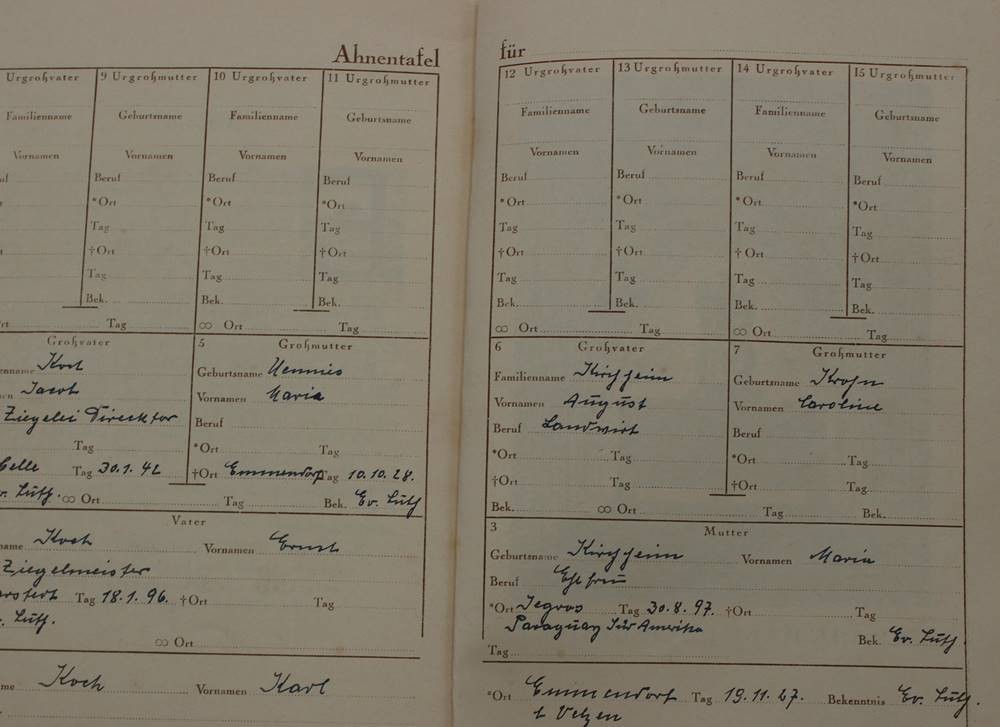 Ahnentafel für
Urgroßvater 9 Urgroßmutter 10 Urgroßvater 11 Urgroßmutter
Familienname Geburtsname Familienname Geburtsname
Vornamen Vornamen Vornamen Vornamen
Beruf Beruf Beruf
*Ort *Ort *Ort
Tag Tag Tag
†Ort †Ort †Ort
Tag Tag Tag
Bek. Bek. Bek.
Tag ∞ Ort Tag
Großvater
Koch
Jacob
Ziegelei Direktor
Tag
Celle Tag 30.1.42
Luth. ∞ Ort
5 Großmutter
Geburtsname Hennies
Vornamen Maria
Beruf
*Ort Tag
†Ort Emmendorf Tag 10.10.28.
Tag Bek. Ev. Luth
Vater
Koch Vornamen Ernst
Ziegelmeister
Tag 18.1.96. †Ort Tag
Luth.
∞ Ort
Koch Vornamen Karl
12 Urgroßvater 13 Urgroßmutter 14 Urgroßvater 15 Urgroßmutter
Familienname Geburtsname Familienname Geburtsname
Vornamen Vornamen Vornamen Vornamen
Beruf Beruf Beruf Beruf
*Ort *Ort *Ort *Ort
Tag Tag Tag Tag
†Ort †Ort †Ort †Ort
Tag Tag Tag Tag
Bek. Bek. Bek. Bek.
∞ Ort Tag ∞ Ort Tag
6 Großvater
Familienname Kirchheim
Vornamen August
Beruf Landwirt
*Ort Tag
†Ort Tag
Bek. ∞ Ort
7 Großmutter
Geburtsname Krohn
Vornamen Caroline
Beruf
*Ort Tag
†Ort Tag
Tag Bek.
3 Mutter
Geburtsname Kirchheim Vornamen Maria
Beruf Ehefrau
*Ort Tag 30.8.97. †Ort Tag
Paraguay Süd Amerika
Bek. Ev. Luth.
Tag
*Ort Emmendorf Tag 19.11.27. Bekenntnis Ev. Luth.
Uelzen